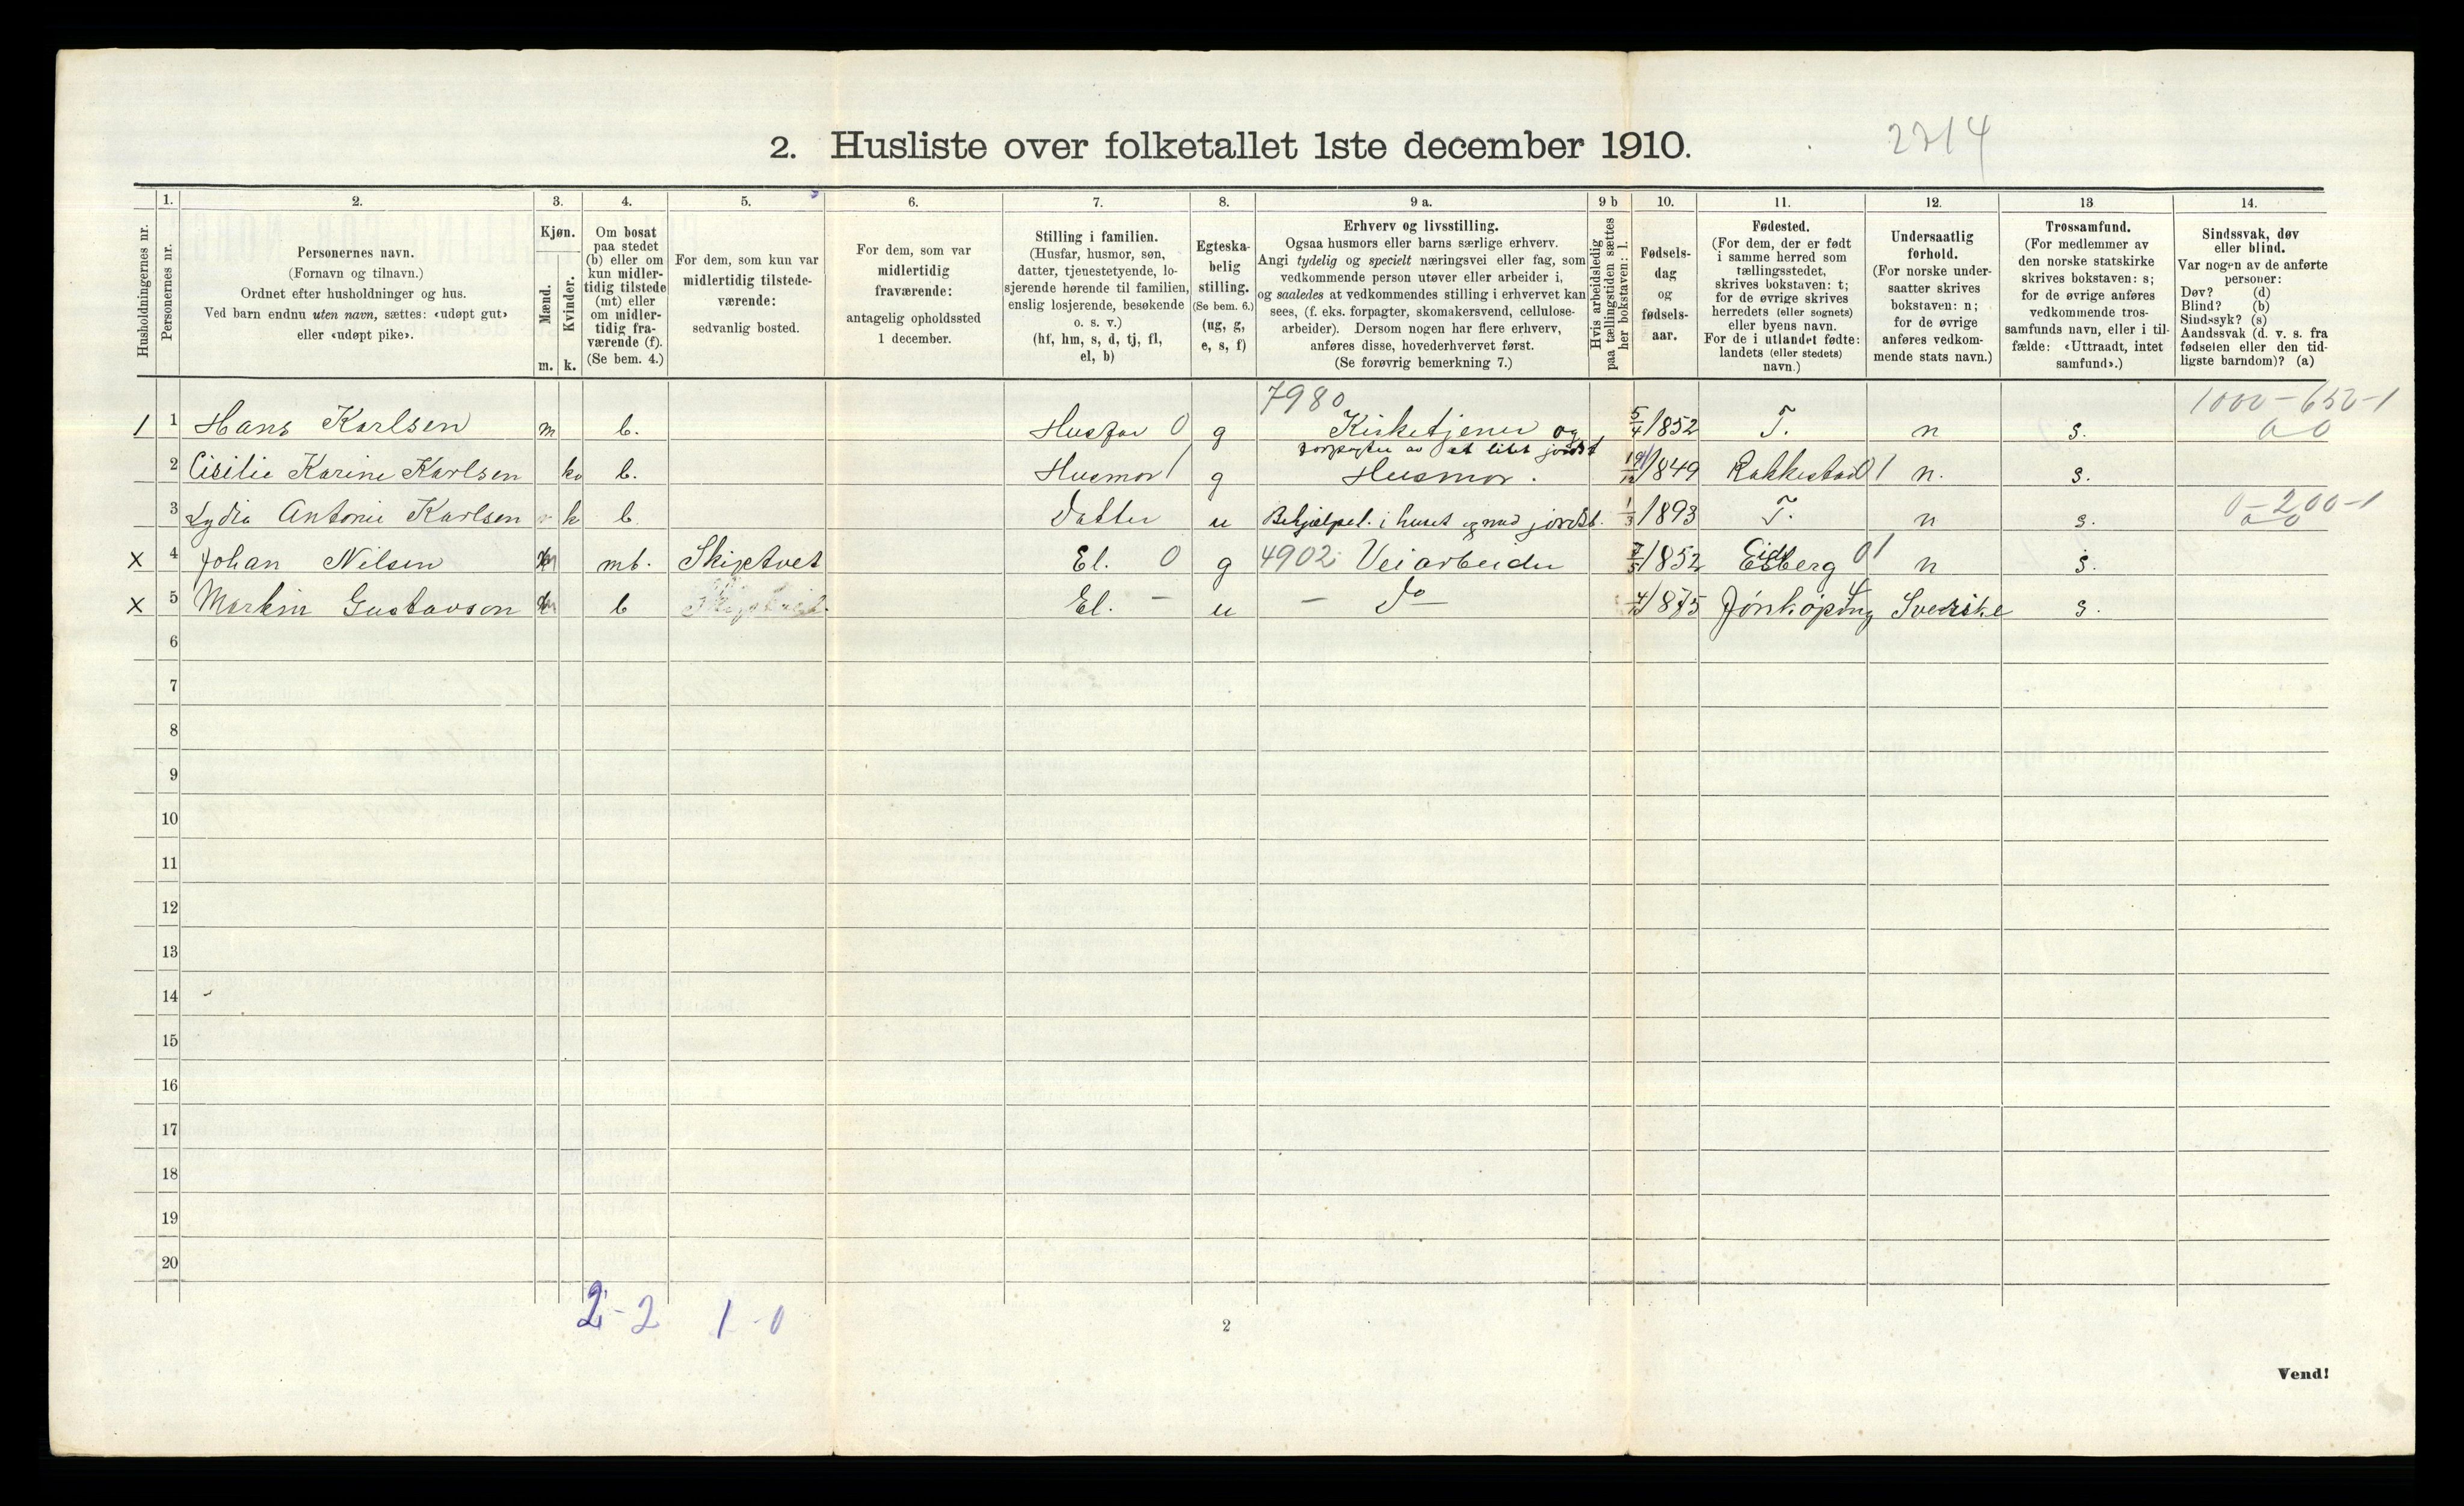 2. Husliste over folketallet 1ste december 1910.
2214
1. 2. 3. 4. 5. 6. 7. 8. 9 a. 9 b 10. 11. 12. 13 14.
Husholdningernes nr.
Personernes nr.
Personernes navn.
(Fornavn og tilnavn.)
Ordnet efter husholdninger og hus.
Ved barn endnu uten navn, sættes: «udøpt gut»
eller «udøpt pike».
Kjøn.
Mænd.
Kvinder.
m. k.
Om bosat
paa stedet
(b) eller om
kun midler-
tidig tilstede
(mt) eller
om midler-
tidig fra-
værende (f).
(Se bem. 4.)
For dem, som kun var
midlertidig tilstede-
værende:
sedvanlig bosted.
For dem, som var
midlertidig
fraværende:
antagelig opholdssted
1 december.
Stilling i familien.
(Husfar, husmor, søn,
datter, tjenestetyende, lo-
sjerende hørende til familien,
enslig losjerende, besøkende
o. s. v.)
(hf, hm, s, d, tj, fl,
el, b)
Egteska-
belig
stilling.
(Se bem. 6.)
(ug, g,
e, s, f)
Erhverv og livsstilling.
Ogsaa husmors eller barns særlige erhverv.
Angi tydelig og specielt næringsvei eller fag, som
vedkommende person utøver eller arbeider i,
og saaledes at vedkommendes stilling i erhvervet kan
sees, (f. eks. forpagter, skomakersvend, cellulose-
arbeider). Dersom nogen har flere erhverv,
anføres disse, hovederhvervet først.
(Se forøvrig bemerkning 7.)
Hvis arbeidsledig
paa tællingstiden sættes
her bokstaven: l.
Fødsels-
dag
og
fødsels-
aar.
Fødested.
(For dem, der er født
i samme herred som
tællingsstedet,
skrives bokstaven: t;
for de øvrige skrives
herredets (eller sognets)
eller byens navn.
For de i utlandet fødte:
landets (eller stedets)
navn.)
Undersaatlig
forhold.
(For norske under-
saatter skrives
bokstaven: n;
for de øvrige
anføres vedkom-
mende stats navn.)
Trossamfund.
(For medlemmer av
den norske statskirke
skrives bokstaven: s;
for de øvrige anføres
vedkommende tros-
samfunds navn, eller i til-
fælde: «Uttraadt, intet
samfund».)
Sindssvak, døv
eller blind.
Var nogen av de anførte
personer:
Døv? (d)
Blind? (b)
Sindssyk? (s)
Aandssvak (d. v. s. fra
fødselen eller den tid-
ligste barndom)? (a)
7980 1000-650-1
1 1 Hans Karlsen m b. Husfar 0 g Kirketjener og 5/4 1852 T. n s. a 0
forpagter av et litet jordst
2 Cisilie Karine Karlsen k b. Husmor 1 g Husmor. 1849 Rakkestad 01 n. s.
3 Lydia Antonie Karlsen k b Datter u Behjælpel. i huset og med jordst. 1/3 1893 T. n s. 0-200-1
a 0
x 4 Johan Nilsen m mt. Skiptvet El. 0 g 4902 Veiarbeider 7/5 1852 Eidsberg 01 n s.
x 5 Martin Gustavson m b El. - u - Do 1875 Jönköping Sverike s.
6
7
8
9
10
11
12
13
14
15
16
17
18
19
20
2-2 1-0
2
Vend!